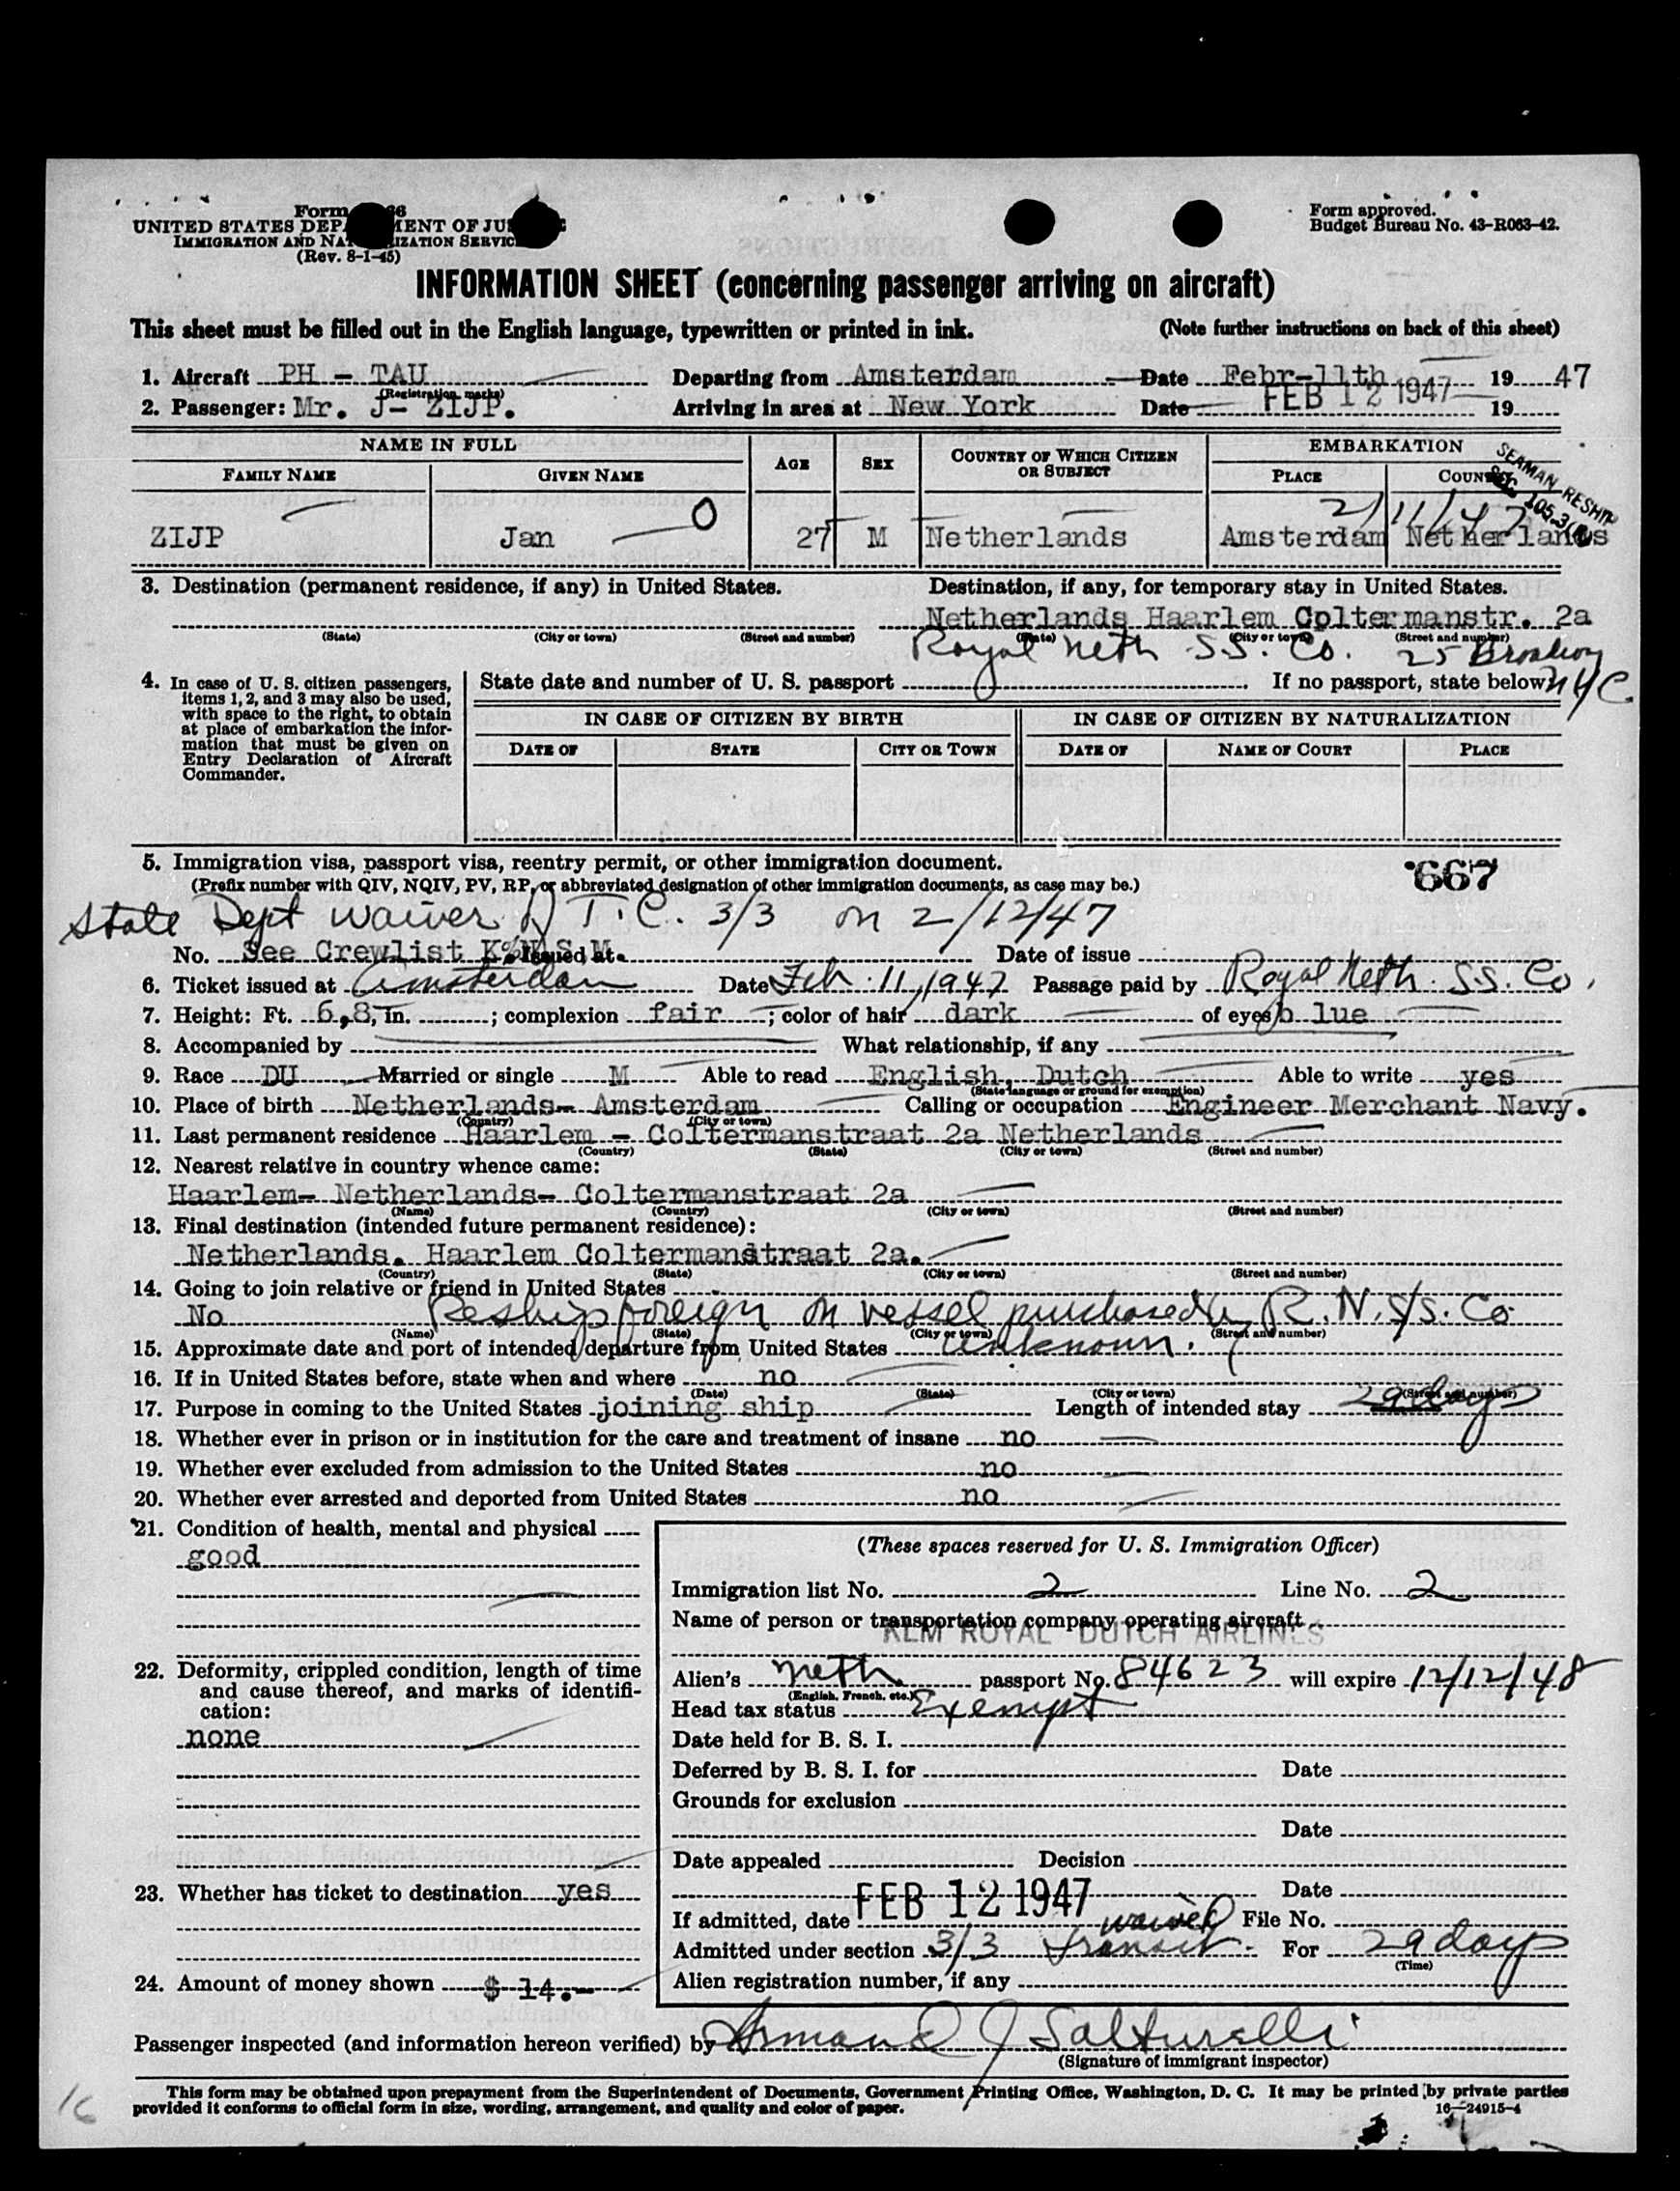 Form 66
UNITED STATES DEPA MENT OF JU
IMMIGRATION AND NAT IZATION SERVIC
(Rev. 8-1-45)
Form approved.
Budget Bureau No. 43-R063-42.
INFORMATION SHEET (concerning passenger arriving on aircraft)
This sheet must be filled out in the English language, typewritten or printed in ink. (Note further instructions on back of this sheet)
1. Aircraft PH - TAU Departing from Amsterdam Date Febr-11th 19 47
(Registration marks)
2. Passenger: Mr. J- ZIJP. Arriving in area at New York Date FEB 12 1947 19
NAME IN FULL AGE SEX COUNTRY OF WHICH CITIZEN OR SUBJECT EMBARKATION
FAMILY NAME GIVEN NAME PLACE COUN
SEAMAN RESHIP
SEC 105.3
2/11/47
ZIJP Jan 0 27 M Netherlands Amsterdam Netherlands
3. Destination (permanent residence, if any) in United States. Destination, if any, for temporary stay in United States.
Netherlands Haarlem Coltermanstr. 2a
(State) (City or town) (Street and number) (State) (City or town) (Street and number)
Royal Neth S.S. Co. 25 Broadway
NYC
4. In case of U. S. citizen passengers, items 1, 2, and 3 may also be used, with space to the right, to obtain at place of embarkation the information that must be given on Entry Declaration of Aircraft Commander.
State date and number of U. S. passport If no passport, state below
IN CASE OF CITIZEN BY BIRTH IN CASE OF CITIZEN BY NATURALIZATION
DATE OF STATE CITY OR TOWN DATE OF NAME OF COURT PLACE
5. Immigration visa, passport visa, reentry permit, or other immigration document.
667
(Prefix number with QIV, NQIV, PV, RP, or abbreviated designation of other immigration documents, as case may be.)
State Dept waiver T.C. 3/3 on 2/12/47
No. See Crewlist Issued at Date of issue
6. Ticket issued at Amsterdam Date Feb. 11, 1947 Passage paid by Royal Neth. S.S. Co.
7. Height: Ft. 6,8, in. ; complexion fair ; color of hair dark of eyes b lue
8. Accompanied by What relationship, if any
9. Race DU Married or single M Able to read English, Dutch Able to write yes
(State language or ground for exemption)
10. Place of birth Netherlands- Amsterdam Calling or occupation Engineer Merchant Navy.
(Country) (City or town)
11. Last permanent residence Haarlem - Coltermanstraat 2a Netherlands
(Country) (State) (City or town) (Street and number)
12. Nearest relative in country whence came:
Haarlem- Netherlands- Coltermanstraat 2a
(Name) (Country) (City or town) (Street and number)
13. Final destination (intended future permanent residence):
Netherlands. Haarlem Coltermanstraat 2a.
(Country) (State) (City or town) (Street and number)
14. Going to join relative or friend in United States
No Reship foreign on vessel purchased by R.N.S/S. Co
(Name) (State) (City or town) (Street and number)
15. Approximate date and port of intended departure from United States Unknown.
16. If in United States before, state when and where no
(Date) (State) (City or town) (Street and number)
17. Purpose in coming to the United States joining ship Length of intended stay 29 days
18. Whether ever in prison or in institution for the care and treatment of insane no
19. Whether ever excluded from admission to the United States no
20. Whether ever arrested and deported from United States no
21. Condition of health, mental and physical
good
22. Deformity, crippled condition, length of time and cause thereof, and marks of identification:
none
23. Whether has ticket to destination yes
24. Amount of money shown $ 14.-
(These spaces reserved for U. S. Immigration Officer)
Immigration list No. 2 Line No. 2
Name of person or transportation company operating aircraft
KLM ROYAL DUTCH AIRLINES
Alien's Neth passport No. 84623 will expire 12/12/48
(English, French, etc.)
Head tax status Exempt
Date held for B. S. I.
Deferred by B. S. I. for Date
Grounds for exclusion
Date
Date appealed Decision
Date
If admitted, date FEB 12 1947 File No.
waived
Admitted under section 3/3 transit. For 29 days
(Time)
Alien registration number, if any
Passenger inspected (and information hereon verified) by Armand J Salturelli
(Signature of immigrant inspector)
This form may be obtained upon prepayment from the Superintendent of Documents, Government Printing Office, Washington, D. C. It may be printed by private parties
provided it conforms to official form in size, wording, arrangement, and quality and color of paper. 16-24915-4
16